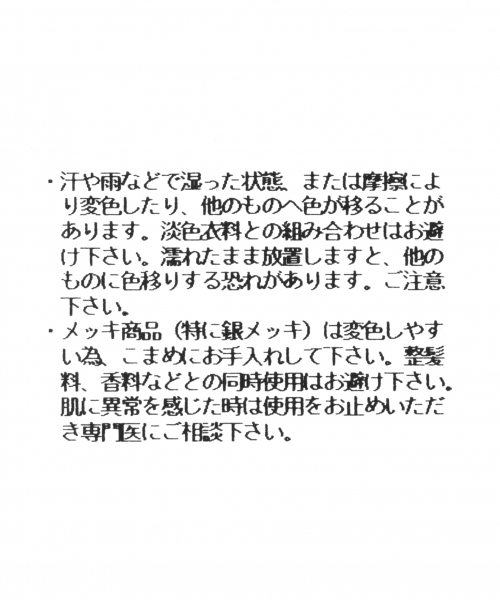 ・汗や雨などで湿った状態、または摩擦によ
り変色したり、他のものへ色が移ることが
あります。淡色衣料との組み合わせはお避
け下さい。濡れたまま放置しますと、他の
ものに色移りする恐れがあります。ご注意
下さい。
・メッキ商品（特に銀メッキ）は変色しやす
い為、こまめにお手入れして下さい。整髪
料、香料などとの同時使用はお避け下さい。
肌に異常を感じた時は使用をお止めいただ
き専門医にご相談下さい。